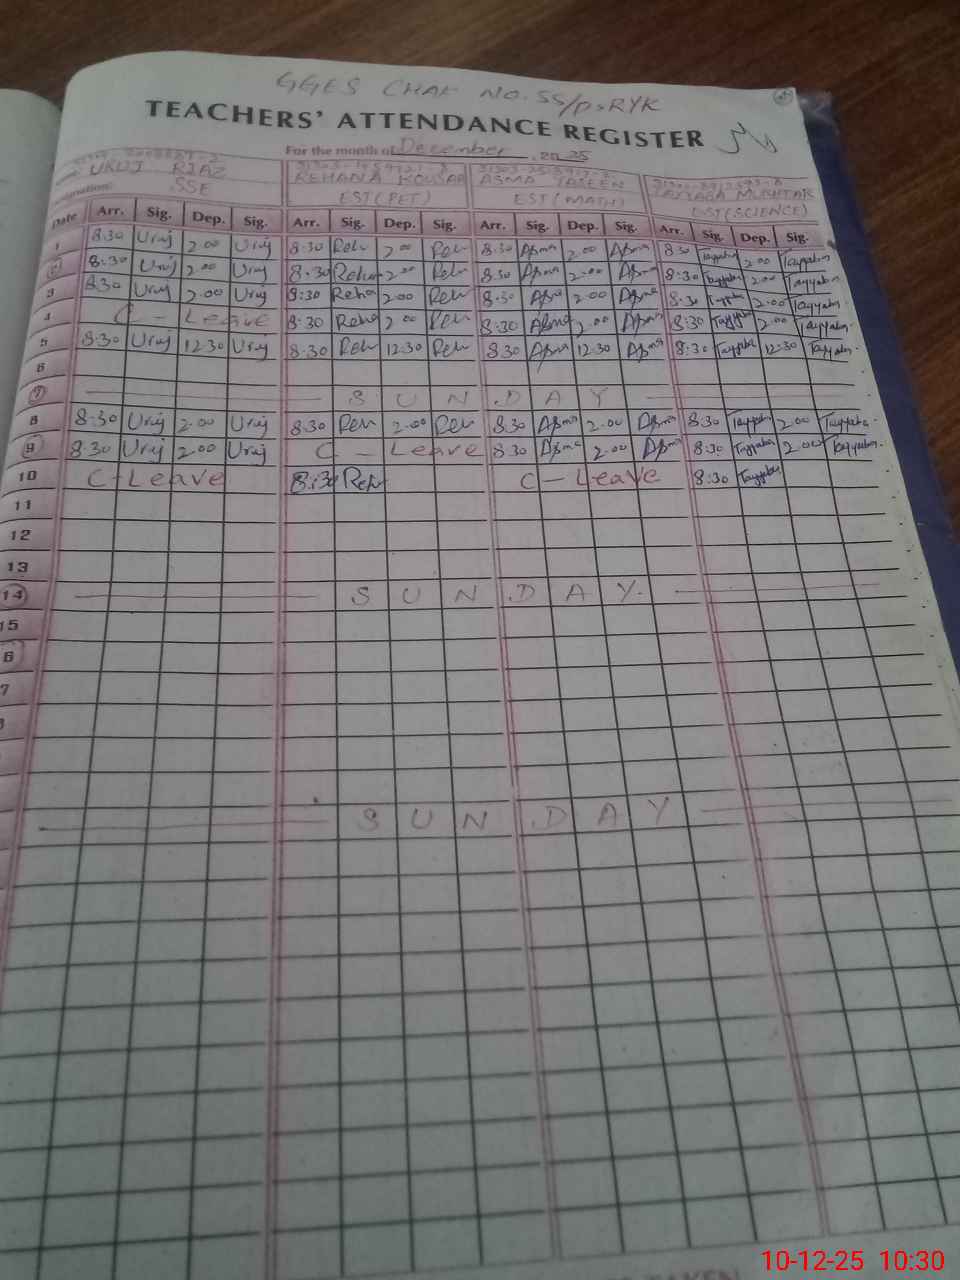 GGES CHAK NO. 55/P.RYK
TEACHERS' ATTENDANCE REGISTER
For the month of December, 2025
URUJ RIAZ REHANA KOUSAR ASMA TASEEN TAYYABA MUKHTAR
SSE EST(PET) EST(MATH) EST(SCIENCE)
Date Arr. Sig. Dep. Sig. Arr. Sig. Dep. Sig. Arr. Sig. Dep. Sig. Arr. Sig. Dep. Sig.
1 8:30 Uruj 2.00 Uruj 8:30 Reh 2.00 Reh 8:30 Asma 2.00 Asma 8:30 Tayyaba 2.00 Tayyaba
2 8:30 Uruj 2.00 Uruj 8:30 Reha 2.00 Reh 8:30 Asma 2.00 Asma 8:30 Tayyaba 2.00 Tayyaba
3 8:30 Uruj 2.00 Uruj 8:30 Reha 2.00 Reh 8:30 Asma 2.00 Asma 8:30 Tayyaba 2.00 Tayyaba
4 C - Leave 8:30 Reha 2.00 Reh 8:30 Asma 2.00 Asma 8:30 Tayyaba 2.00 Tayyaba
5 8:30 Uruj 12:30 Uruj 8:30 Reh 12:30 Reh 8:30 Asma 12:30 Asma 8:30 Tayyaba 12:30 Tayyaba
6
7 SUNDAY
8 8:30 Uruj 2.00 Uruj 8:30 Reh 2.00 Reh 8:30 Asma 2.00 Asma 8:30 Tayyaba 2.00 Tayyaba
9 8:30 Uruj 2.00 Uruj C - Leave 8:30 Asma 2.00 Asma 8:30 Tayyaba 2.00 Tayyaba
10 C-Leave 8:30 Reh C - Leave 8:30 Tayyaba
11
12
13
14 SUNDAY
15
6
7
SUNDAY
10-12-25 10:30